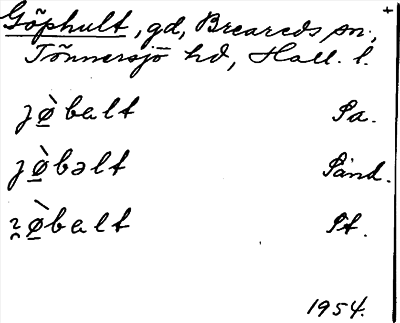 Göphult, gd, Breareds sn., +
Tönnersjö hd, Hall. l.
jø̀balt Pa.
jø̀bəlt Pånd.
ɀø̀balt Pt.
1954.